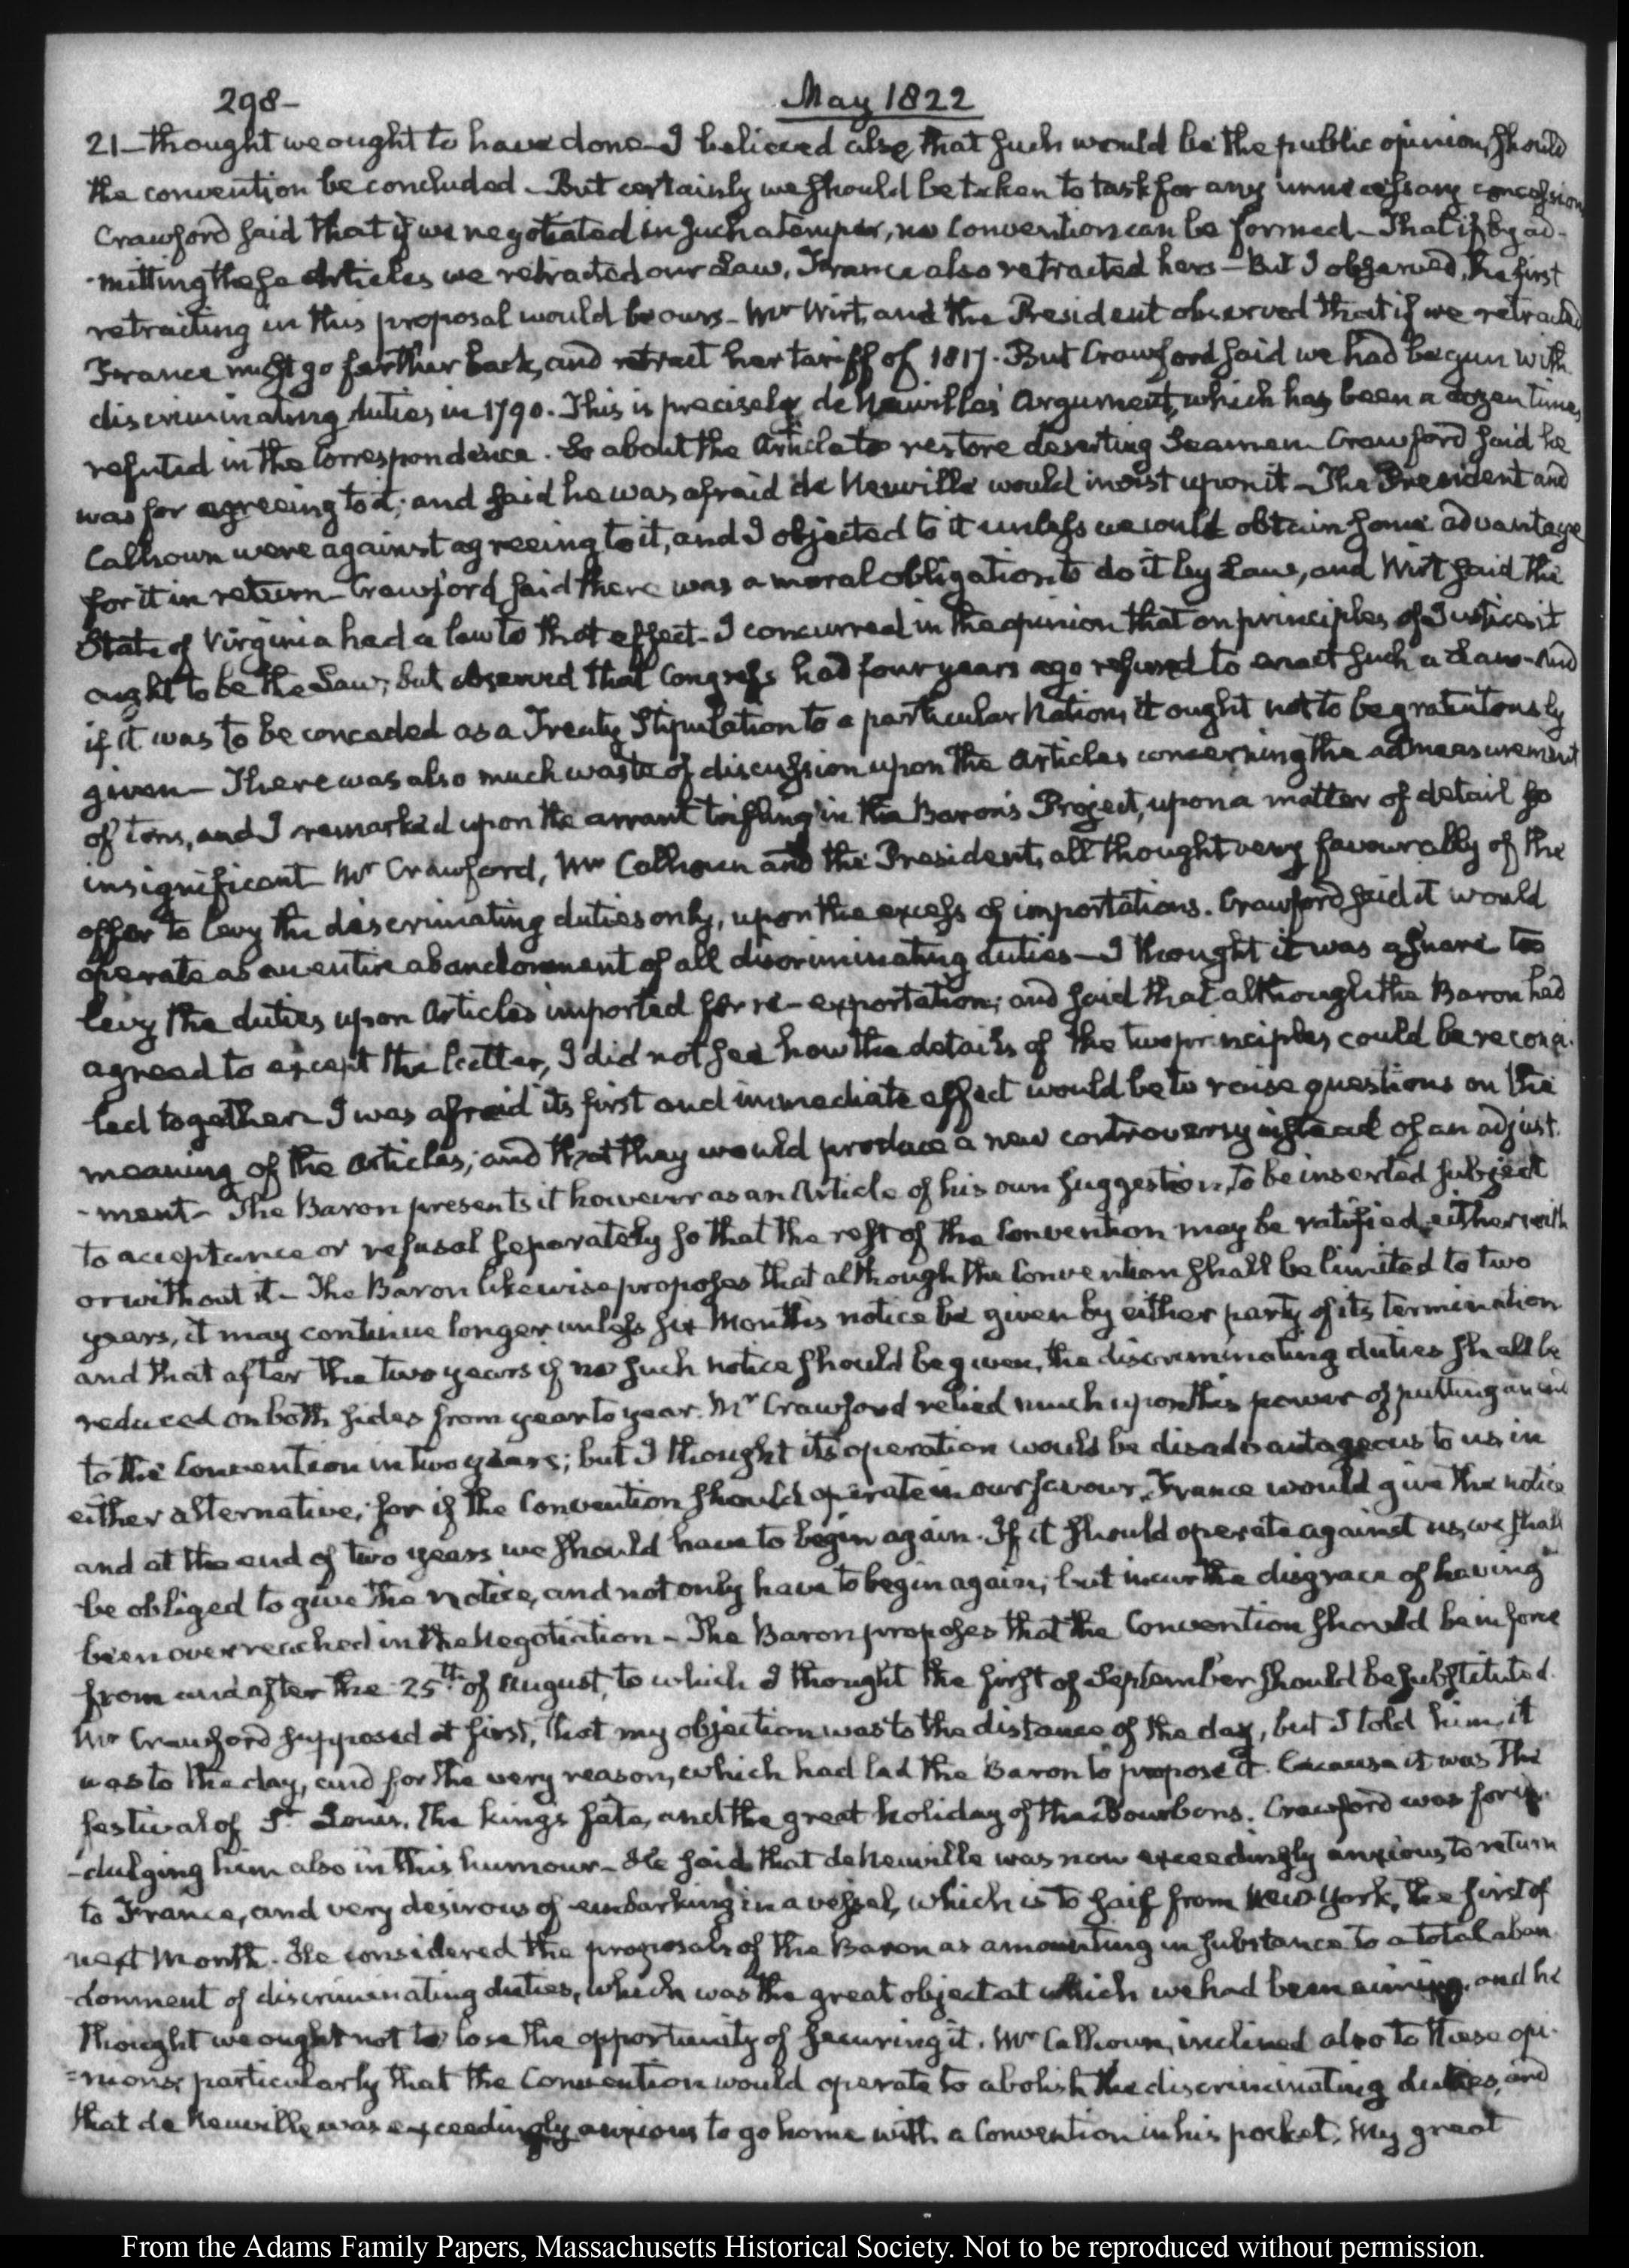 298-
May 1822
21- thought we ought to have done- I believed also, that such would be the public opinion, should
the convention be concluded. But certainly we should be taken to task for any unnecessary concession
Crawford said that if we negotiated in such a temper, no Convention can be formed- That if by ad-
-mitting these Articles we retracted our Law, France also retracted hers- But I observed, the first
retracting in this proposal would be ours- Mr Wirt, and the President observed that if we retracted
France must go farther back, and retract her tariff of 1817. But Crawford said we had begun with
discriminating duties in 1790. This is precisely de Neuville's Argument, which has been a dozen times
refuted in the Correspondence. So about the Article to restore deserting Seamen Crawford said he
was for agreeing to it; and said he was afraid de Neuville would insist upon it- The President and
Calhoun were against agreeing to it, and I objected to it unless we could obtain some advantage
for it in return- Crawford said there was a moral obligation to do it by Law, and Wirt said the
State of Virginia had a law to that effect- I concurred in the opinion that on principles of Justice it
ought to be the Law; but observed that Congress had four years ago refused to enact such a Law- And
if it was to be conceded as a Treaty Stipulation to a particular Nation, it ought not to be gratuitously
given- There was also much waste of discussion upon the Articles concerning the admeasurement
of tons, and I remarked upon the arrant trifling in the Baron's Project, upon a matter of detail so
insignificant- Mr Crawford, Mr Calhoun and the President, all thought very favourably of the
offer to levy the discriminating duties only, upon the excess of importations. Crawford said it would
operate as an entire abandonment of all discriminating duties- I thought it was a snare to
levy the duties upon Articles imported for re-exportation; and said that although the Baron had
agreed to except the latter, I did not see how the details of the two principles could be reconci-
led together- I was afraid its first and immediate effect would be to raise questions on the
meaning of the Articles; and that they would produce a new controversy instead of an adjust-
-ment- The Baron presents it however as an Article of his own suggestion, to be inserted subject
to acceptance or refusal separately so that the rest of the Convention may be ratified, either with
or without it- The Baron likewise proposes that although the Convention shall be limited to two
years, it may continue longer unless six Months notice be given by either party of its termination
and that after the two years if no such notice should be given, the discriminating duties shall be
reduced on both sides from year to year. Mr Crawford relied much upon this power of putting an end
to the Convention in two years; but I thought its operation would be disadvantageous to us in
either alternative; for if the Convention should operate in our favour, France would give the notice
and at the end of two years we should have to begin again. If it should operate against us, we shall
be obliged to give the notice, and not only have to begin again; but incur the disgrace of having
been overreached in the Negotiation- The Baron proposes that the Convention should be in force
from and after the 25th of August, to which I thought the first of September should be substituted.
Mr Crawford supposed at first, that my objection was to the distance of the day, but I told him, it
was to the day, and for the very reason, which had led the Baron to propose it. Because it was the
festival of St Louis, the kings fete, and the great holiday of the Bourbons. Crawford was for in-
-dulging him also in this humour- He said that de Neuville was now exceedingly anxious to return
to France, and very desirous of embarking in a vessel, which is to sail from New York, the first of
next Month. He considered the proposals of the Baron as amounting in substance to a total aban-
-donment of discriminating duties, which was the great object at which we had been aiming, and he
thought we ought not to lose the opportunity of securing it. Mr Calhoun, inclined also to these opi-
=nions, particularly that the Convention would operate to abolish the discriminating duties, and
that de Neuville was exceedingly anxious to go home with a Convention in his pocket. My great
From the Adams Family Papers, Massachusetts Historical Society. Not to be reproduced without permission.